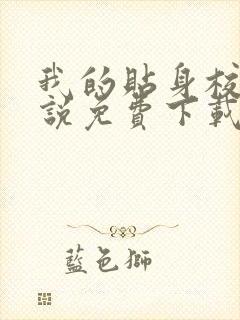 我的贴身校
説免費下載
藍色獅